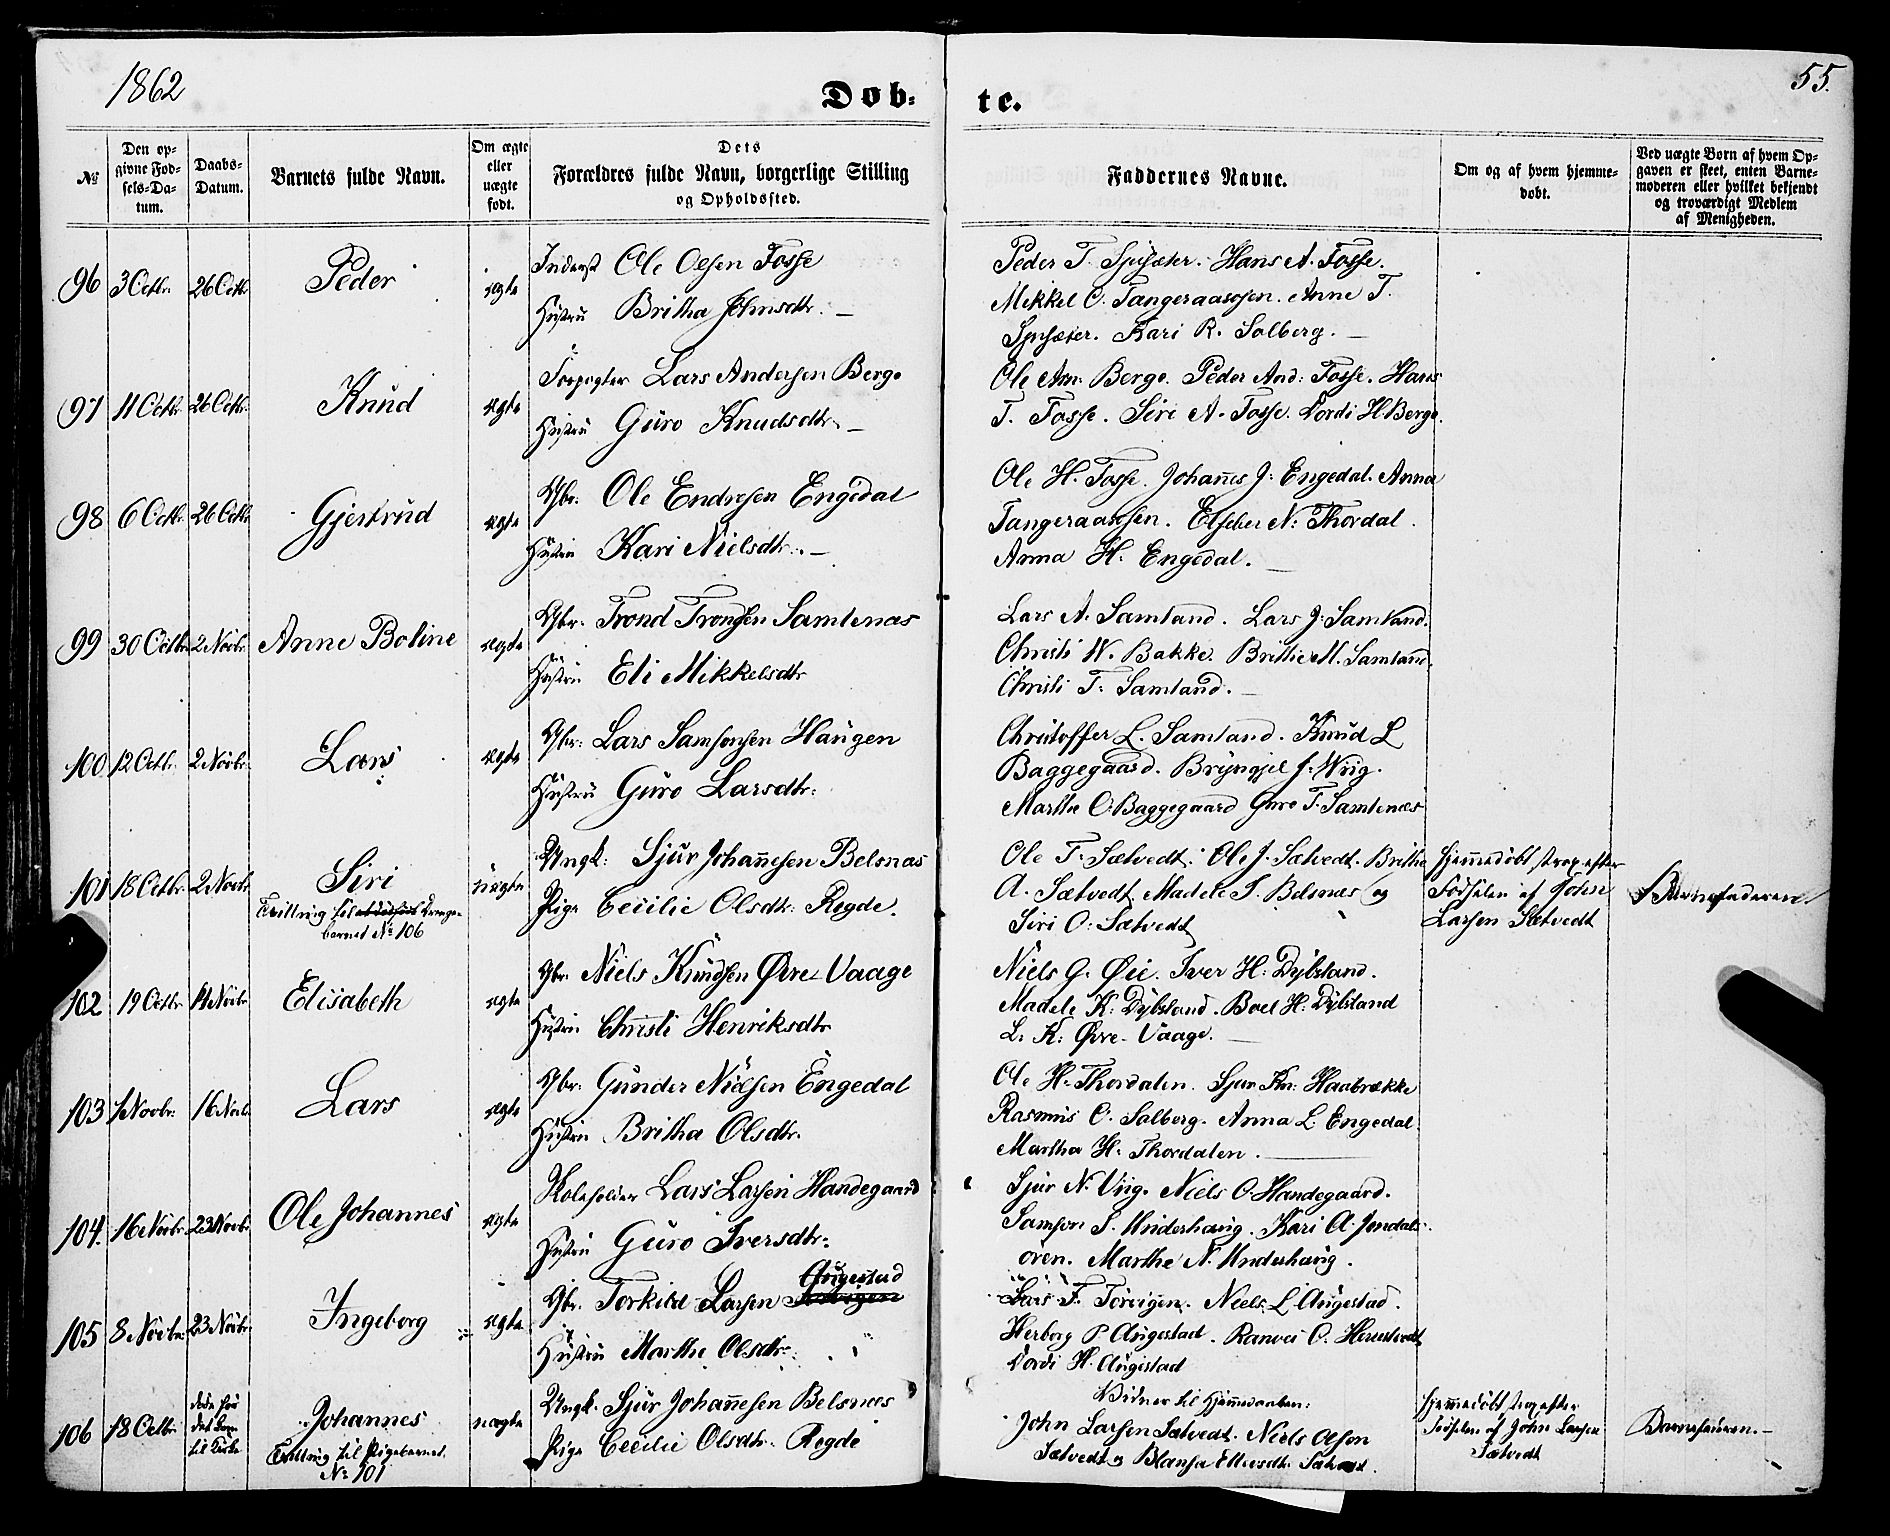 1862
55.
Døb-
te.
№
Den op-
givne Fød-
sels-Da-
tum.
Daabs-
Datum.
Barnets fulde Navn.
Om ægte
eller
uægte
født.
Dets
Forældres fulde Navn, borgerlige Stilling
og Opholdssted.
Faddernes Navne.
Om og af hvem hjemme-
døbt.
Ved uægte Børn af hvem Op-
gaven er skeet, enten Barne-
moderen eller hvilket bekjendt
og troværdigt Medlem
af Menigheden.
96 3 Octbr. 26 Octbr Peder ægte
Inderst Ole Olsen Fosse
Hustru Britha Johnsdtr. —
Peder T. Spusæter. Hans A. Fosse.
Mikkel O. Tangeraassen. Anne T.
Spusæter. Kari R. Solberg. —
97 11 Octbr. 26 Octbr. Knud ægte
Forpagter Lars Andersen Berge
Hustru Guro Knudsdtr. —
Ole Am. Berge. Peder And: Fosse. Hans
T. Fosse. Siri A. Fosse. Vordi H. Berge.
98 6 Octbr. 26 Octbr Gjertrud ægte
Gbr. Ole Endresen Engedal
Hustru Kari Nielsdtr. —
Ole H. Fosse. Johannes J. Engedal. Anna
Tangeraassen. Elsebe N. Thordal.
Anna H. Engedal. —
99 30 Octbr. 2 Novbr. Anne Boline ægte
Gbr. Trond Tronsen Samlenæs
Hustru Eli Mikkelsdtr
Lars A. Samland. Lars J. Samland.
Christi W. Bakke. Brithe M. Samland.
Christi T. Samland. —
100 12 Octbr. 2 Novbr. Lars ægte
Gbr. Lars Samsonsen Haugen
Hustru Guro Larsdtr.
Christoffer L. Samland. Knud L
Baggegaard. Brynjel J. Wiig.
Marthe O. Baggegaard Guro T. Samlenæs
101 18 Octbr. 2 Novbr. Siri uægte
Tvilling til Drenge-
barnet No 106
Ungk. Sjur Johannesen Belsnæs
Pige Cecilie Olsdtr. Regde.
Ole T. Sætvedt. Ole J. Sætvedt. Britha
A. Sætvedt. Madele S. Belsnæs og
Siri O. Sætvedt
Hjemmedøbt strax efter
Fødselen af John
Larsen Sætvedt
Barnefaderen.
102 19 Octbr. Novbr. Elisabeth ægte
Gbr. Niels Knudsen Øvre Vaage
Hustru Christi Henriksdtr
Niels G. Øie. Iver H. Dybsland.
Madele K. Dybsland. Boel H. Dybsland
L. K. Øvre-Vaage. —
103 1 Novbr. 16 Novb. Lars ægte
Gbr. Gunder Nielsen Engedal
Hustru Britha Olsdtr.
Ole H. Thordalen. Sjur Kn. Haabrække
Rasmus O. Solberg. Anna L. Engedal.
Martha H. Thordalen. —
104. 16 Novbr. 23 Novbr. Ole Johannes ægte
Lars Larsen Handegaard
Hustru Guro Iversdtr.
Sjur N. Viig. Niels O. Handegaard.
Samson S. Underhaug. Kari A. Jondals-
øren. Marthe N. Underhaug.
105 8 Novbr. 23 Novbr. Ingeborg ægte
Augestad
Gbr. Torkild Larsen
Hustru Marthe Olsdtr.
Lars T. Torvigen. Niels L. Augestad.
Herborg P. Augestad. Ranvei O. Herestvedt
Vordi H. Augestad
106 18 Octbr. døde før
det kom
til Kirke Johannes uægte
Tvilling til Pigebarnet
No 101
Ungk. Sjur Johannesen Belsnæs
Pige Cecilie Olsdtr. Regde
Vidner til Hjemmedaaben:
John Larsen Sætvedt. Niels Olsen
Sætvedt og Sætvedt.
Hjemmedøbt strax efter
Fødselen af John Larsen
Sætvedt
Barnefaderen. —